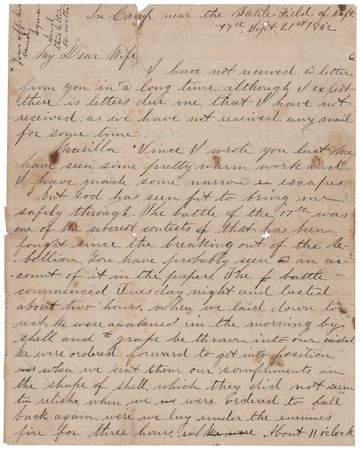 In Camp near the Battle Field of Sept
17th Sept 21st 1862
Send
this letter
to mother
My Dear Wife
I have not received a letter
from you in a long time although I expect
there is letters due me that I have not
received as we have not received any mail
for some time.
Marilla Since I wrote you last we
have seen some pretty warm work and
I have made some narrow es escapes
but God has seen fit to bring me
safely through. The battle of the 17th was
one of the severest contests of that has been
fought since the breaking out of the Re-
bellion You have probably seen a an ac-
count of it in the papers. The f battle
commenced Tuesday night and lasted
about two hours, when we laid down to
rest. We were awakened in the morning by
shell and grape be thrown into our midst
We were ordered forward to get into position
when we sent them our compliments in
the shape of shell, which they did not seem
to relish, when we were ordered to fall
back again, were we lay under the enemies
fire for three hours, we were About 11 o'clock